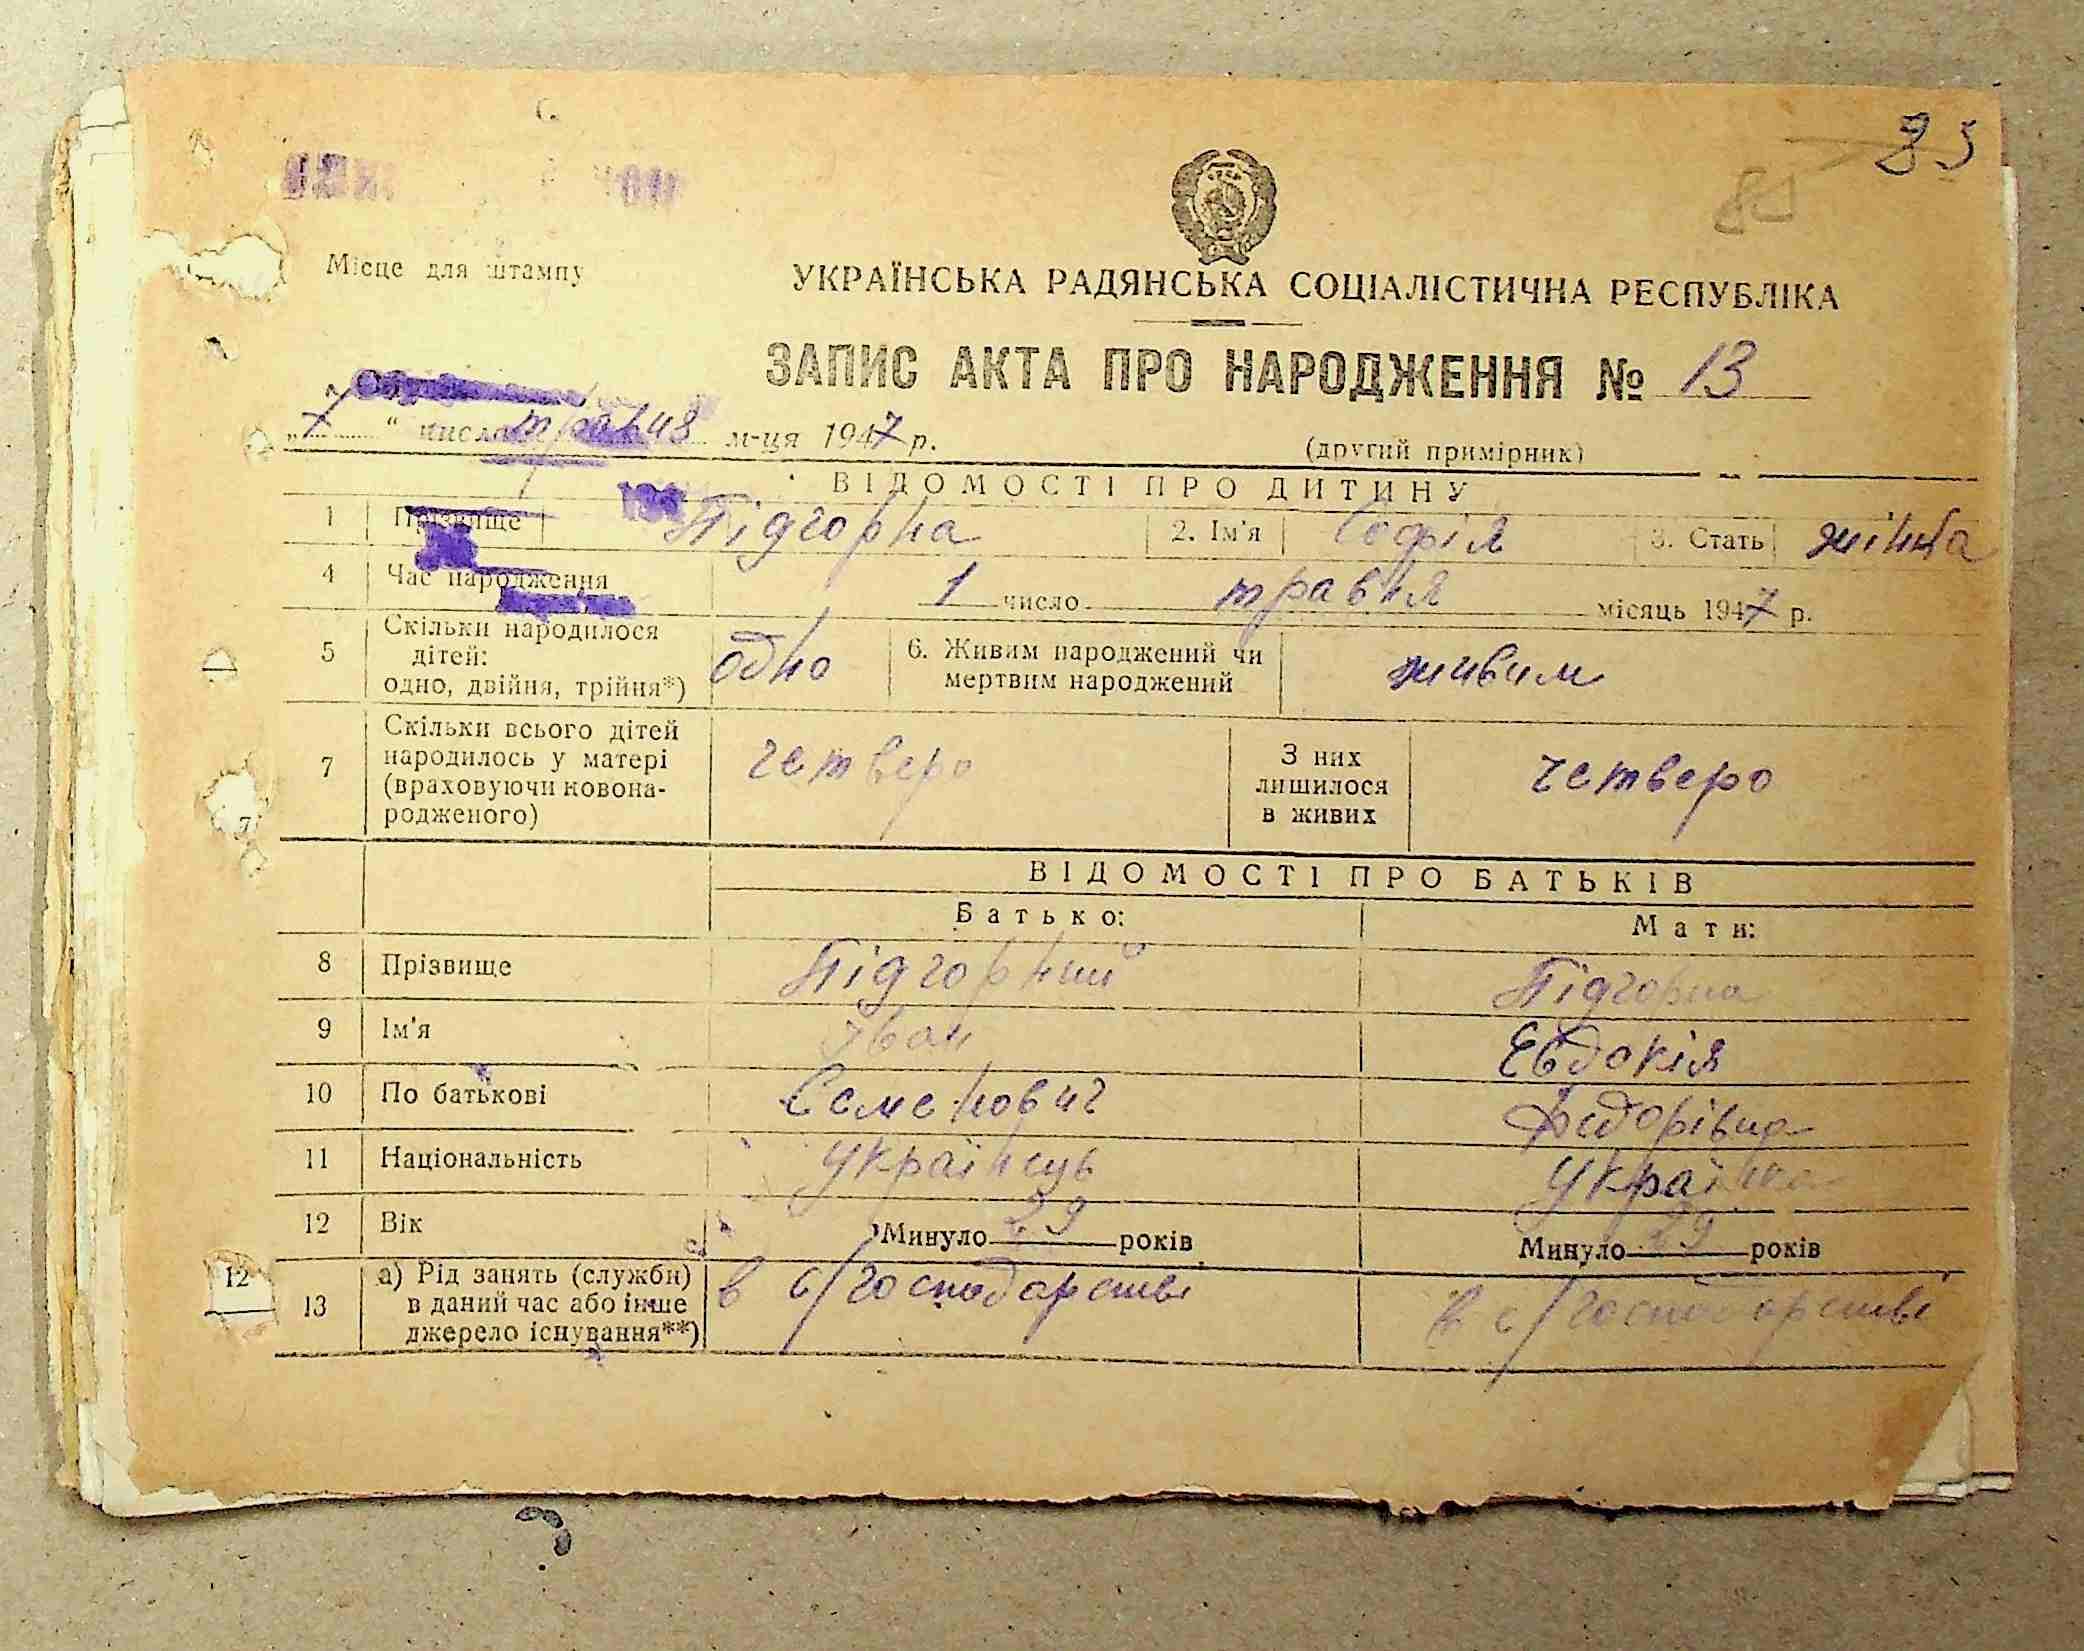 85
85
Місце для штампу
УКРАЇНСЬКА РАДЯНСЬКА СОЦІАЛІСТИЧНА РЕСПУБЛІКА
ЗАПИС АКТА ПРО НАРОДЖЕННЯ № 13
„ 7 “ числа травня м-ця 1947 р.
(другий примірник)
ВІДОМОСТІ ПРО ДИТИНУ
1 Прізвище Підгорна 2. Ім'я Софія 3. Стать жінка
4 Час народження 1 число травня місяць 1947 р.
5 Скільки народилося дітей: одно, двійня, трійня*) одно 6. Живим народжений чи мертвим народжений живим
7 Скільки всього дітей народилось у матері (враховуючи новонародженого) четверо З них лишилося в живих четверо
ВІДОМОСТІ ПРО БАТЬКІВ
Батько: Мати:
8 Прізвище Підгорний Підгорна
9 Ім'я Іван Євдокія
10 По батькові Семенович Федорівна
11 Національність Українець Українка
12 Вік Минуло 29 років Минуло 29 років
13 а) Рід занять (служби) в даний час або інше джерело існування**) в с/господарстві в с/господарстві
7
12